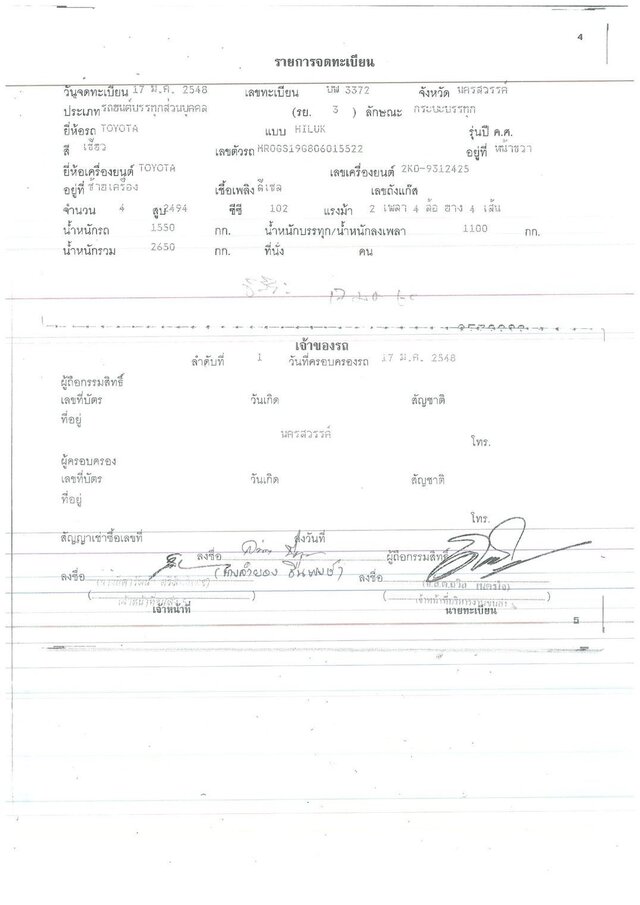 4
รายการจดทะเบียน
วันจดทะเบียน 17 ม.ค. 2548 เลขทะเบียน บพ 3372 จังหวัด นครสวรรค์
ประเภท รถยนต์บรรทุกส่วนบุคคล (รย. 3 ) ลักษณะ กระบะบรรทุก
ยี่ห้อรถ TOYOTA แบบ HILUX รุ่นปี ค.ศ.
สี เขียว เลขตัวรถ MR0GS19G806015522 อยู่ที่ หน้าขวา
ยี่ห้อเครื่องยนต์ TOYOTA เลขเครื่องยนต์ 2KD-9312425
อยู่ที่ ซ้ายเครื่อง เชื้อเพลิง ดีเซล เลขถังแก๊ส
จำนวน 4 สูบ 2494 ซีซี 102 แรงม้า 2 เพลา 4 ล้อ ยาง 4 เส้น
น้ำหนักรถ 1550 กก. น้ำหนักบรรทุก/น้ำหนักลงเพลา 1100 กก.
น้ำหนักรวม 2650 กก. ที่นั่ง คน
เจ้าของรถ
ลำดับที่ 1 วันที่ครอบครองรถ 17 ม.ค. 2548
ผู้ถือกรรมสิทธิ์
เลขที่บัตร วันเกิด สัญชาติ
ที่อยู่
นครสวรรค์
โทร.
ผู้ครอบครอง
เลขที่บัตร วันเกิด สัญชาติ
ที่อยู่
โทร.
สัญญาเช่าซื้อเลขที่ ลงวันที่
ลงชื่อ ผู้ถือกรรมสิทธิ์
ลงชื่อ ลงชื่อ
เจ้าหน้าที่ นายทะเบียน
5